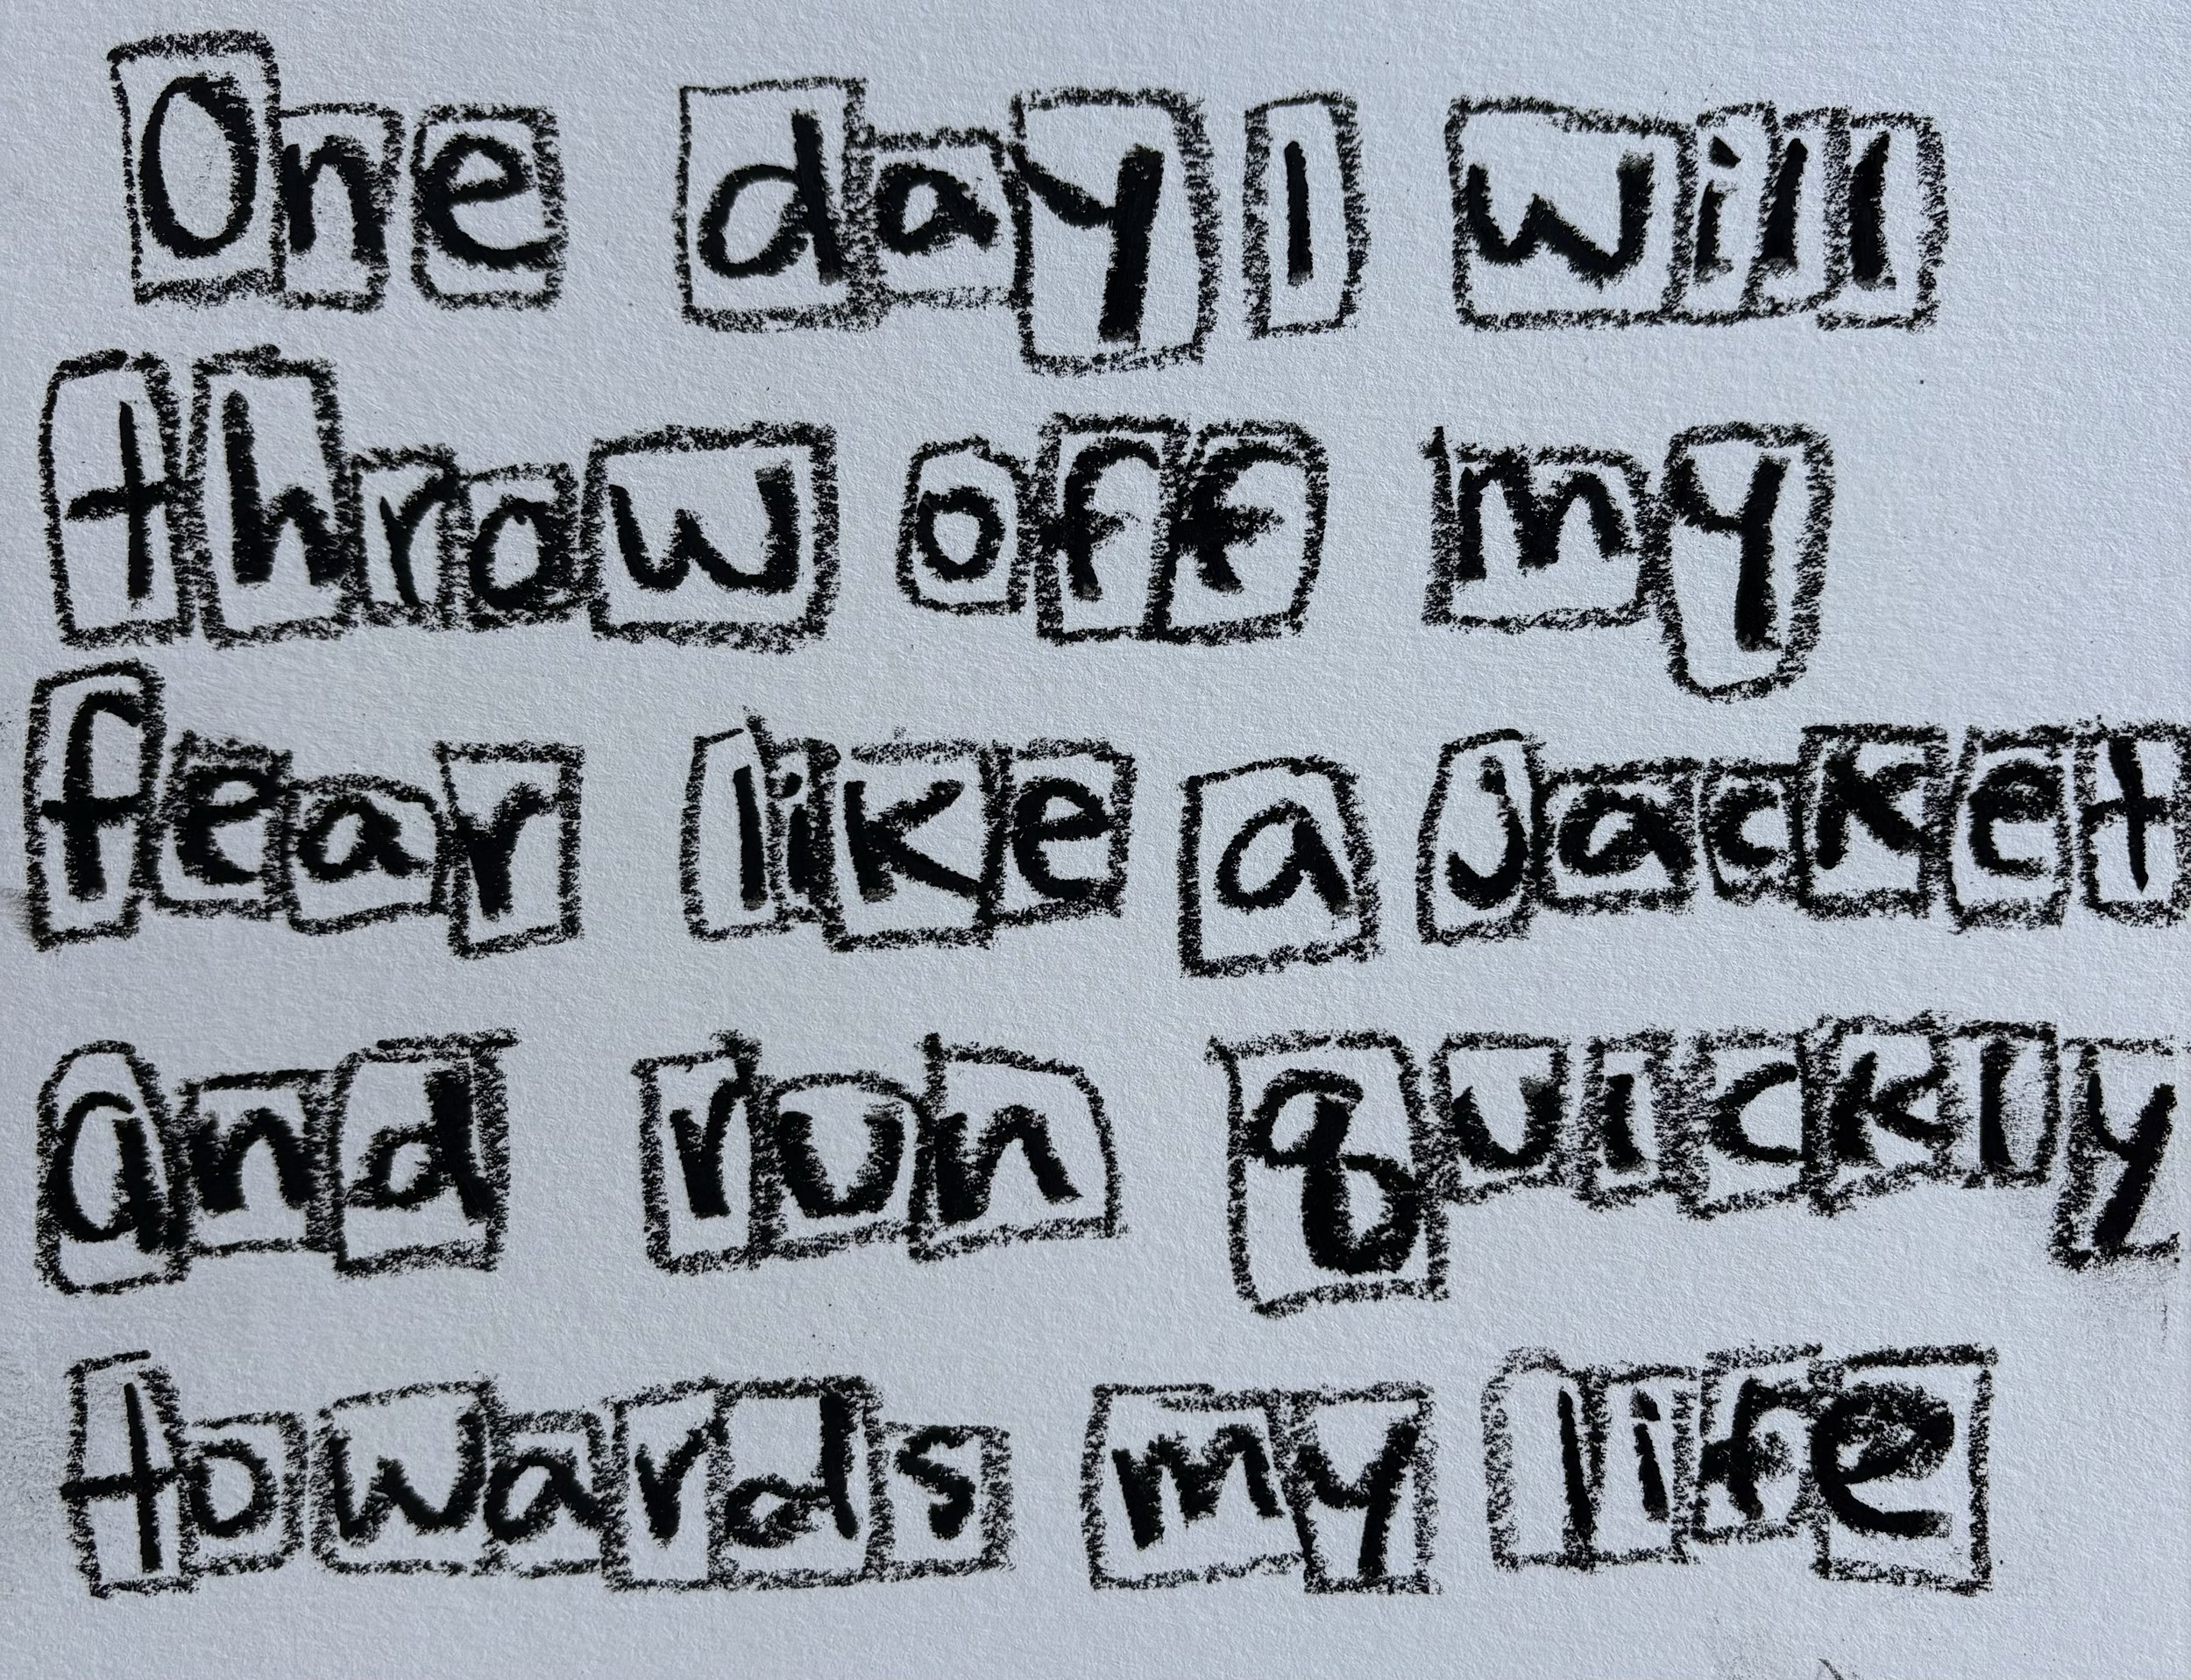 One day I will
throw off my
fear like a jacket
and run quickly
towards my life